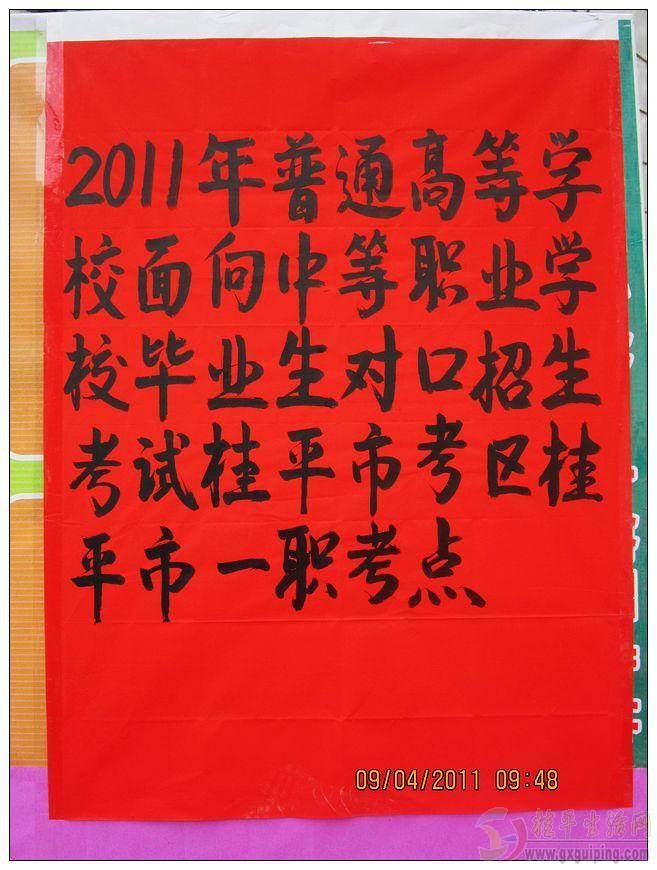 2011年普通高等学
校面向中等职业学
校毕业生对口招生
考试桂平市考区桂
平市一职考点
09/04/2011 09:48
桂平生活网
www.gxguiping.com